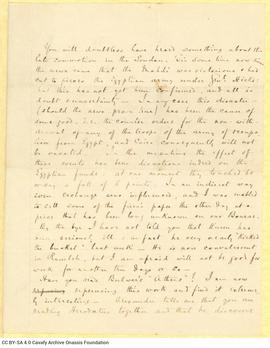 You will doubtless have heard something about the
late commotion in the Soudan. Six some time now
the news came that the Mahdi was victorious & had
cut to pieces the Egyptian army under Gen! Hicks;
but this has not yet been confirmed, and all is
doubt & uncertainty. In any case this disaster
(should the news prove true) has been the cause of
some good, i.e. the counter orders for the non with-
drawal of any of the troops of the army of occupa
tion from Egypt, and Cairo consequently will not
be evacuated. In the meantime the effect of
these events has been disastrous indeed on the
Egyptian funds, at one moment they touched 60
way a fall of 6 points. In an indirect way
even exchange was influenced, and I was enabled
to sell some of the firm's paper the other day at a
price that has been long unknown on our Bourse.
By the bye I have not told you that
very seriously ill & in fact he very nearly kicked
the bucket last week. He is now convalescent
in Ramleh, but I am afraid will not be good for
work for another ten days or so.
Have you seen Bulwer's "Athens"? I am now
perusing this work and find it extreme
ly interesting. Alexander tells me that you are
reading Herodotus together and that he discovers
CC BY-SA 4.0 Cavafy Archive Onassis Foundation